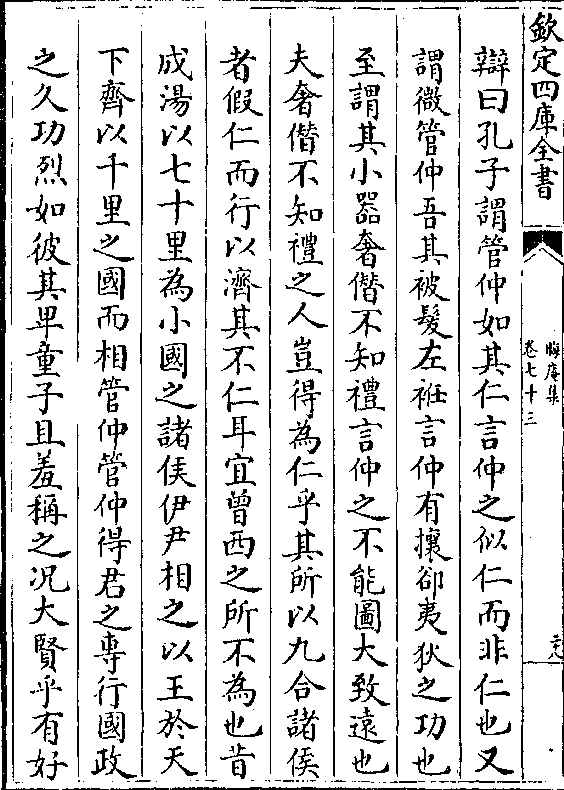 欽定四庫全書
晦庵集
卷七十三
二十八
辯曰孔子謂管仲如其仁言仲之似仁而非仁也又
謂微管仲吾其被髮左袵言仲有攘卻夷狄之功也
至謂其小器奢僣不知禮言仲之不能圖大致逺也
夫奢僣不知禮之人豈得為仁乎其所以九合諸侯
者假仁而行以濟其不仁耳宜曾西之所不為也昔
成湯以七十里為小國之諸侯伊尹相之以王於天
下齊以千里之國而相管仲管仲得君之專行國政
之久功烈如彼其卑童子且羞稱之况大賢乎有好